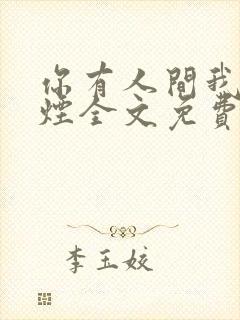 你有人間我
煙全文免費
李玉姣